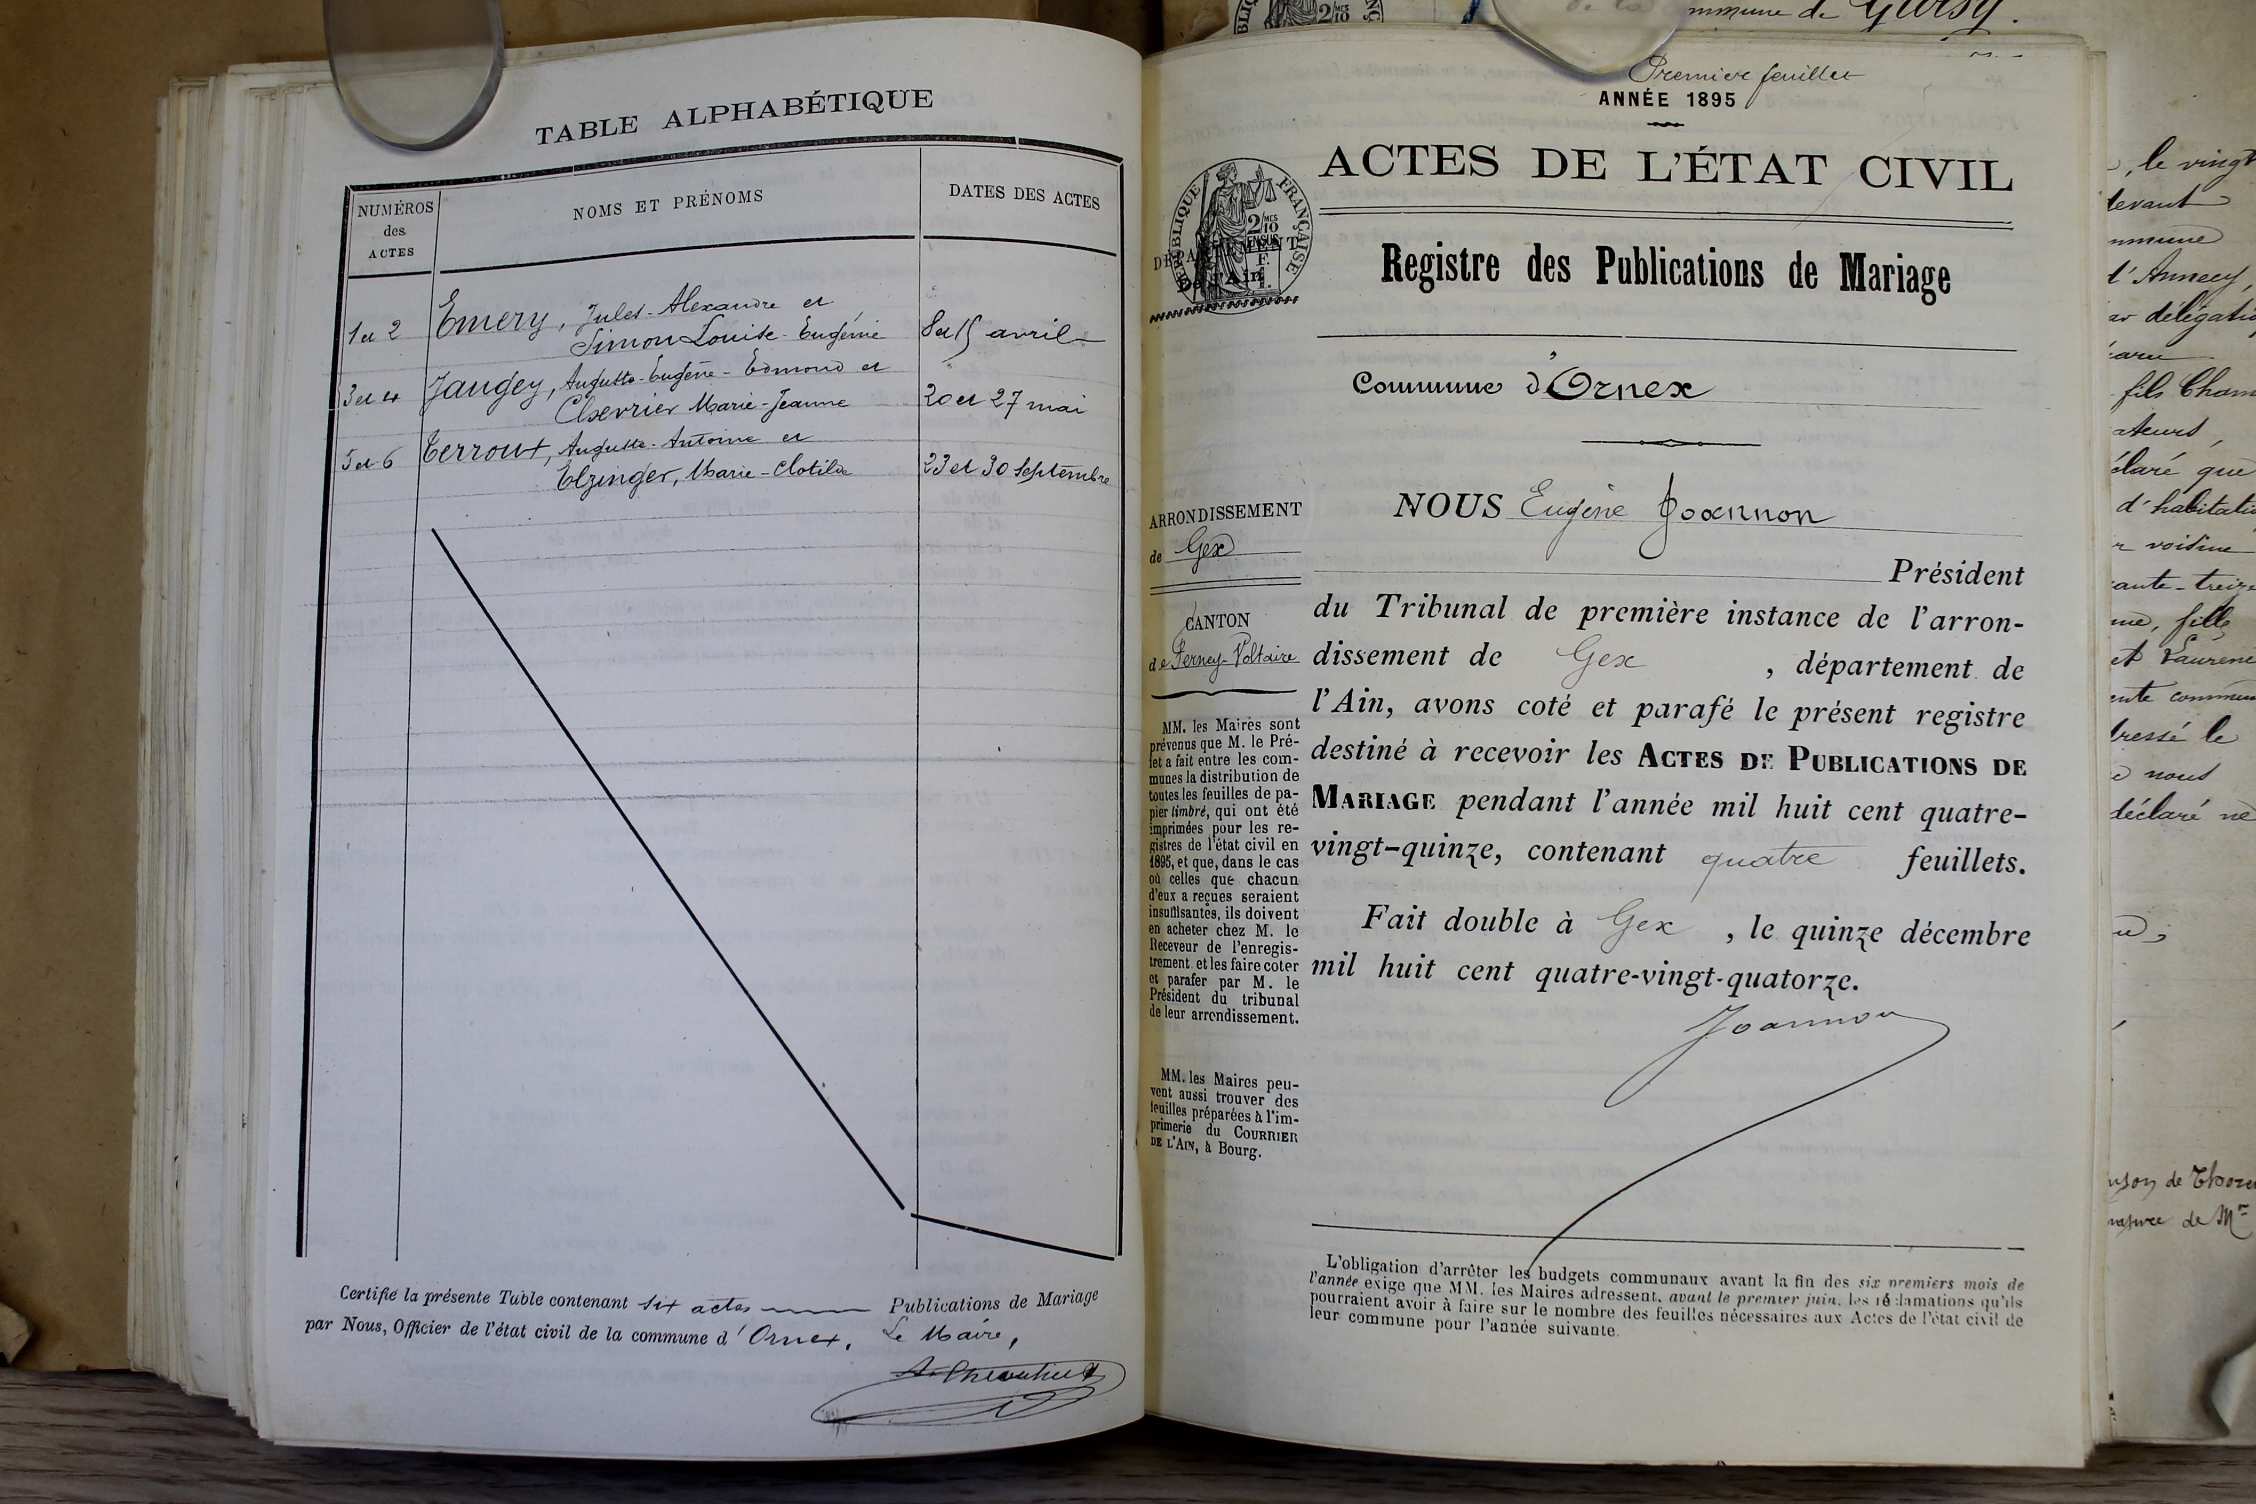 TABLE ALPHABÉTIQUE
NUMÉROS
des
ACTES
NOMS ET PRÉNOMS
DATES DES ACTES
1 et 2 Emery, Jules-Alexandre et
Simon Louise-Eugénie 8 et 15 avril
3 et 4 Jaugey, Auguste-Eugène-Edmond et
Chevrier Marie-Jeanne 20 et 27 mai
5 et 6 Terroux, Auguste-Antoine et
Elzinger, Marie-Clotilde 23 et 30 Septembre
Certifié la présente Table contenant six actes Publications de Mariage
par Nous, Officier de l'état civil de la commune d'Ornex.
Le Maire,
Premier feuillet
ANNÉE 1895
ACTES DE L'ÉTAT CIVIL
RÉPUBLIQUE FRANÇAISE
2/10
MES
EN SUS
DÉPARTEMENT
De l'Ain
Registre des Publications de Mariage
Commune d'Ornex
ARRONDISSEMENT
de Gex
CANTON
de Ferney-Voltaire
MM. les Maires sont
prévenus que M. le Pré-
fet a fait entre les com-
munes la distribution de
toutes les feuilles de pa-
pier timbré, qui ont été
imprimées pour les re-
gistres de l'état civil en
1895, et que, dans le cas
où celles que chacun
d'eux a reçues seraient
insuffisantes, ils doivent
en acheter chez M. le
Receveur de l'enregis-
trement et les faire coter
et parafer par M. le
Président du tribunal
de leur arrondissement.
MM. les Maires peu-
vent aussi trouver des
feuilles préparées à l'im-
primerie du COURRIER
DE L'AIN, à Bourg.
NOUS Eugène Joannon
Président
du Tribunal de première instance de l'arron-
dissement de Gex, département de
l'Ain, avons coté et parafé le présent registre
destiné à recevoir les ACTES DE PUBLICATIONS DE
MARIAGE pendant l'année mil huit cent quatre-
vingt-quinze, contenant quatre feuillets.
Fait double à Gex, le quinze décembre
mil huit cent quatre-vingt-quatorze.
Joannon
L'obligation d'arrêter les budgets communaux avant la fin des six premiers mois de
l'année exige que MM. les Maires adressent, avant le premier juin, les réclamations qu'ils
pourraient avoir à faire sur le nombre des feuilles nécessaires aux Actes de l'état civil de
leur commune pour l'année suivante.
, le vingt
devant
d'Annecy,
délégation
fils
claré que
voisine
fille
et
dressé le
nous
déclaré ne
de
de Mr